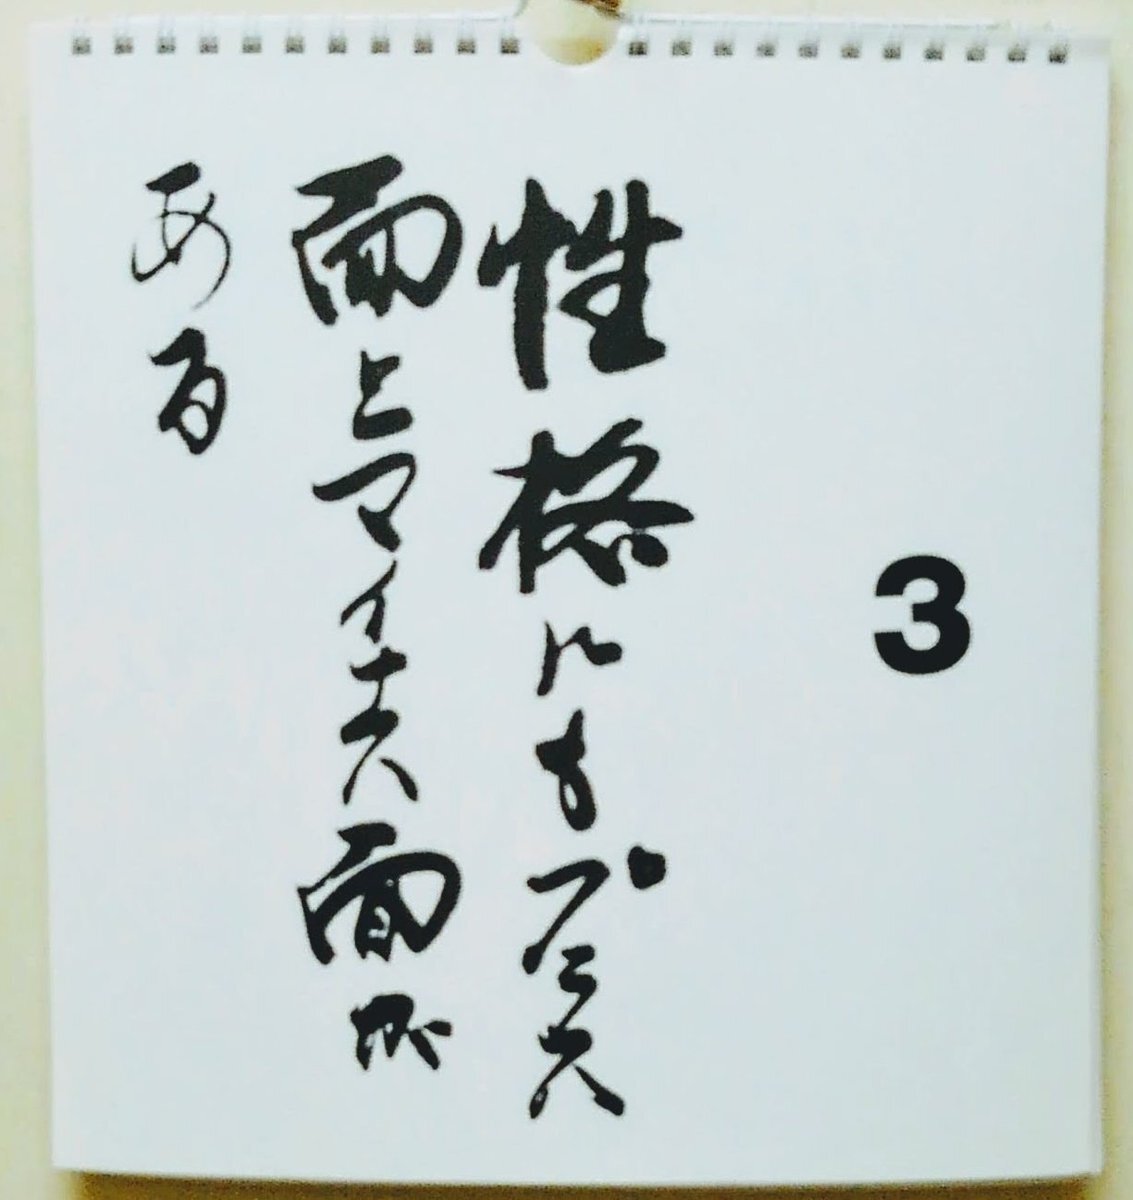 3
性格にもプラス
面とマイナス面が
ある